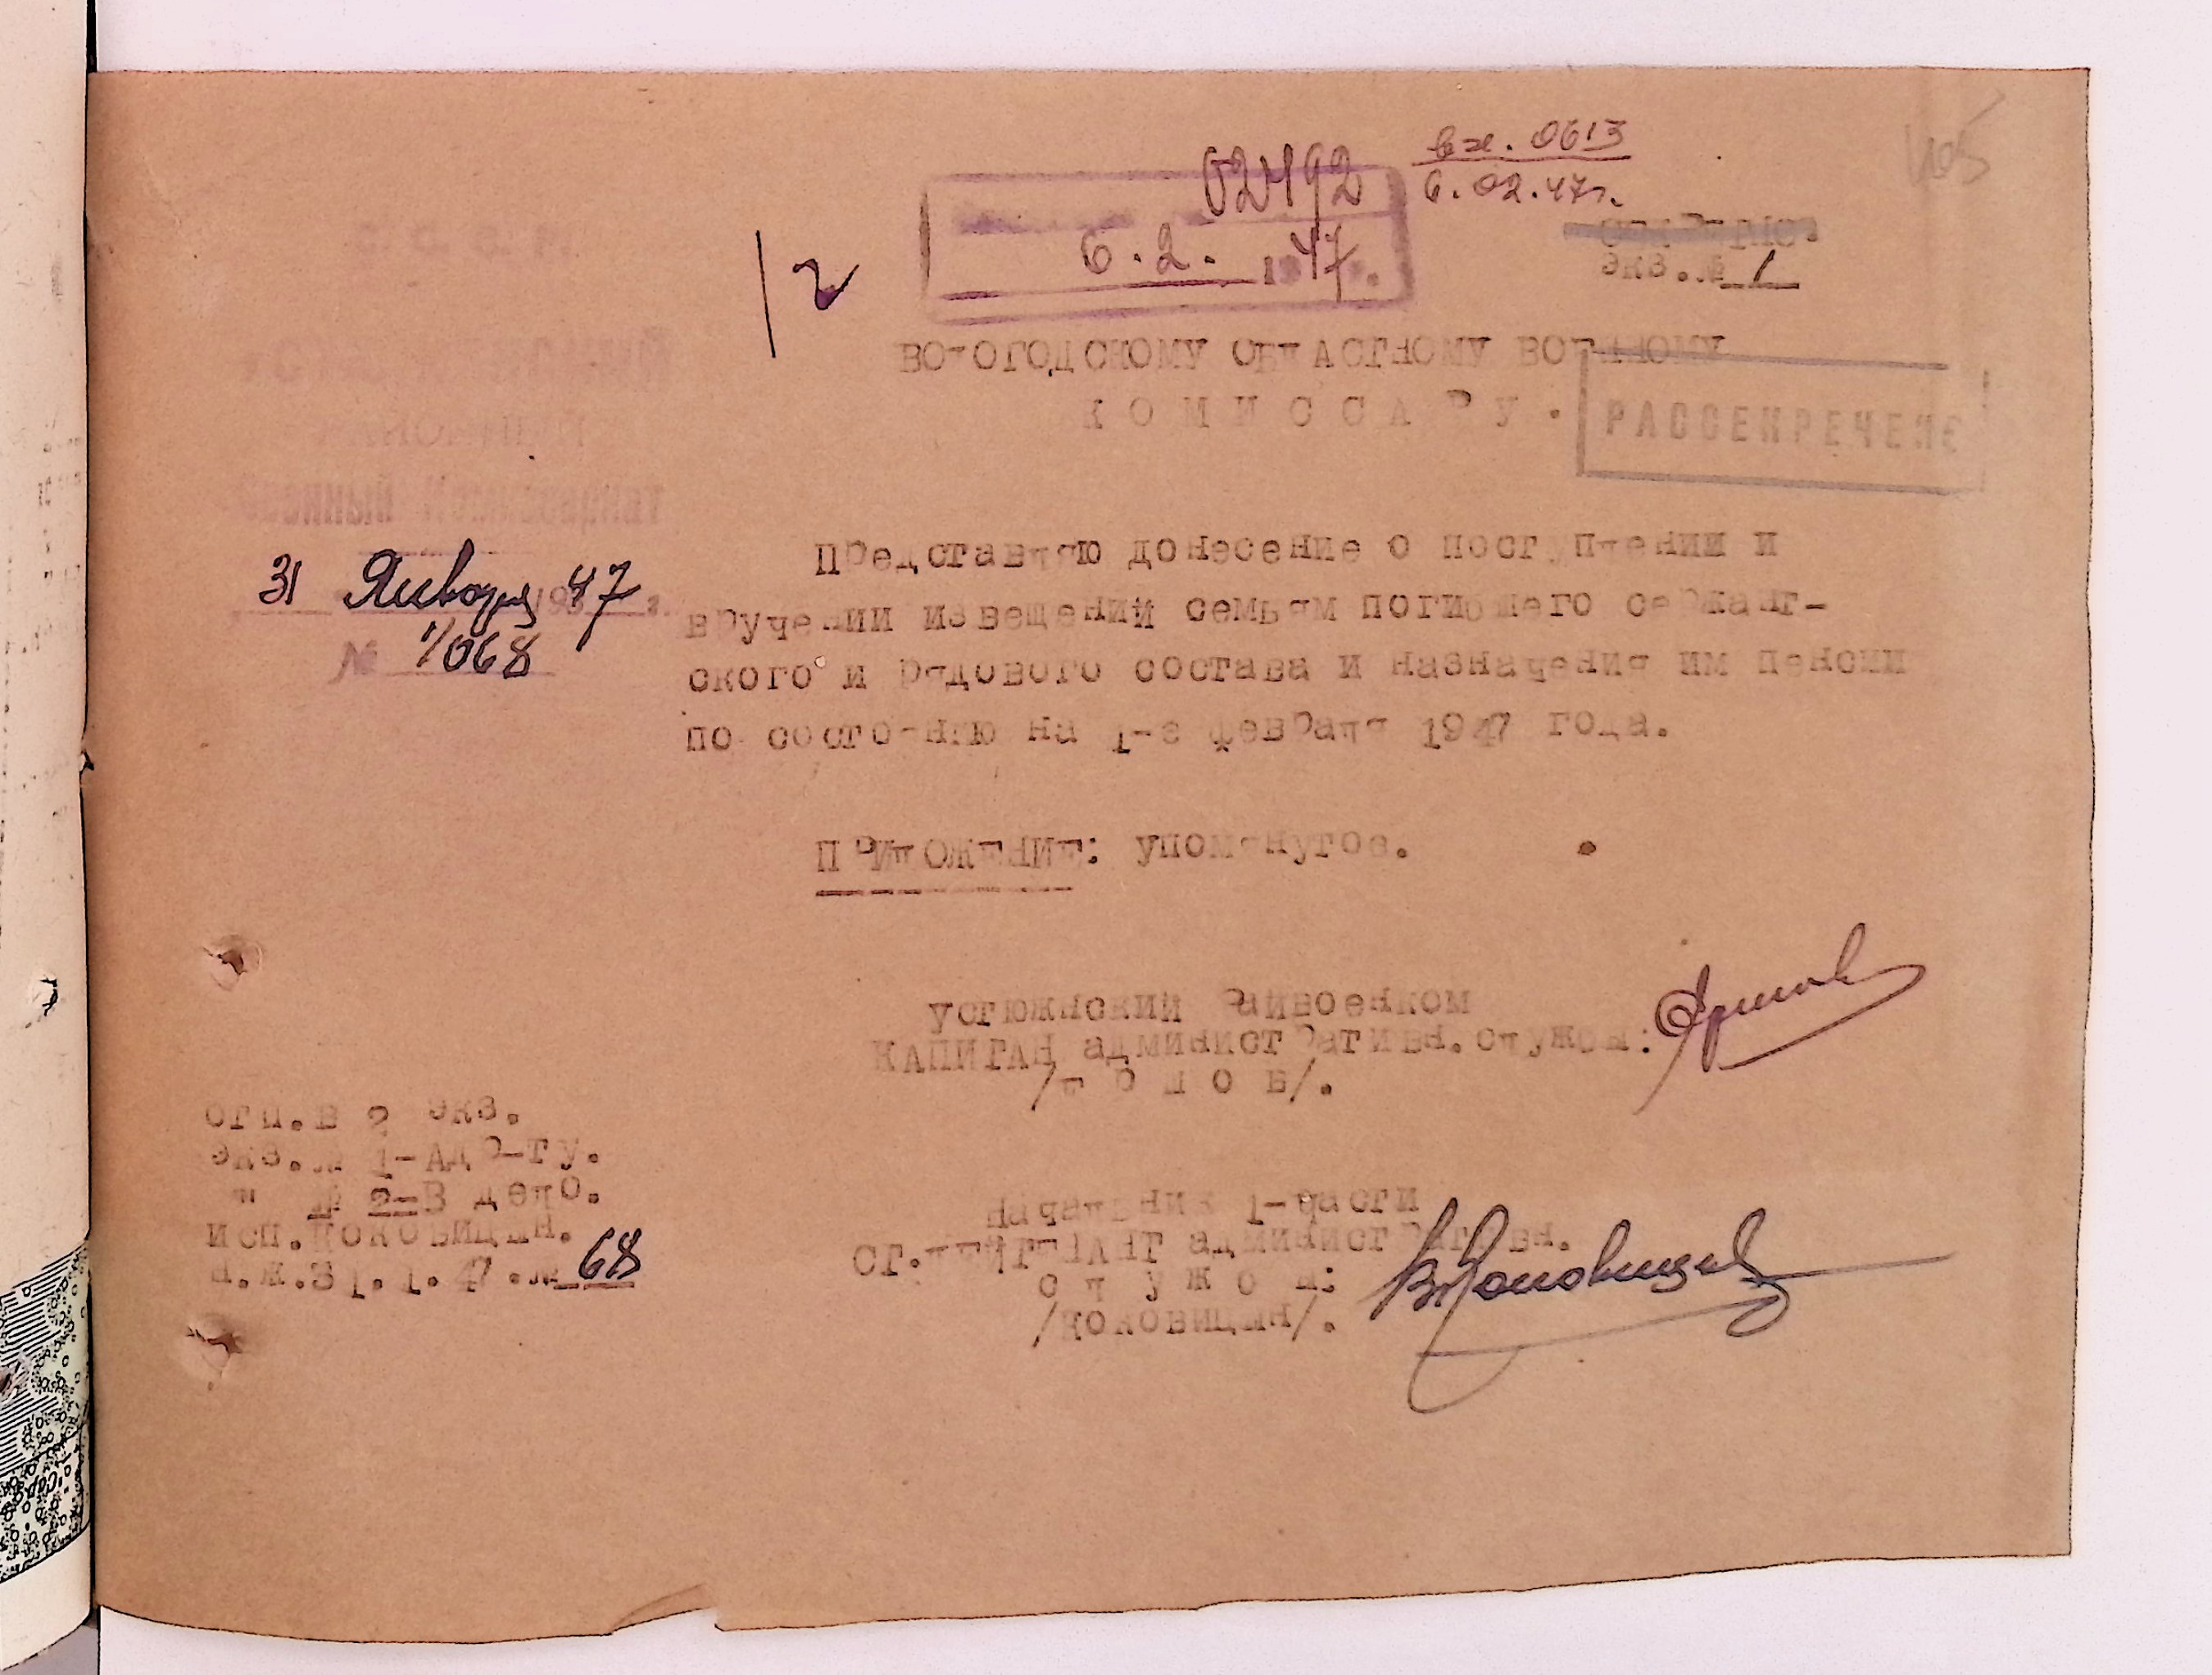 105
вх. 0613
6.02.47г.
02492
6.2. 1947.
экз.№ 1
С. С. С. Р.
2
ВОЛОГОДСКОМУ ОБЛАСТНОМУ ВОЕННОМУ
К О М И С С А Р У .
РАССЕКРЕЧЕНО
31 Января 1947 г.
№ 1/068
Представляю донесение о поступлении и
вручении извещений семьям погибшего сержант-
ского и рядового состава и назначения им пенсии
по состоянию на 1-е февраля 1947 года.
ПРИЛОЖЕНИЕ: упомянутое.
УСТЮЖЕНСКИЙ РАЙВОЕНКОМ
КАПИТАН административн.службы:
отп.в 2 экз.
экз.№ 1-Адр-ту.
" № 2-В дело.
исп.Коковицын.
п.м.31.1.47.№ 68
Начальник 1-части
СТ.ЛЕЙТЕНАНТ административн.
с л у ж б ы:
/Коковицын/.